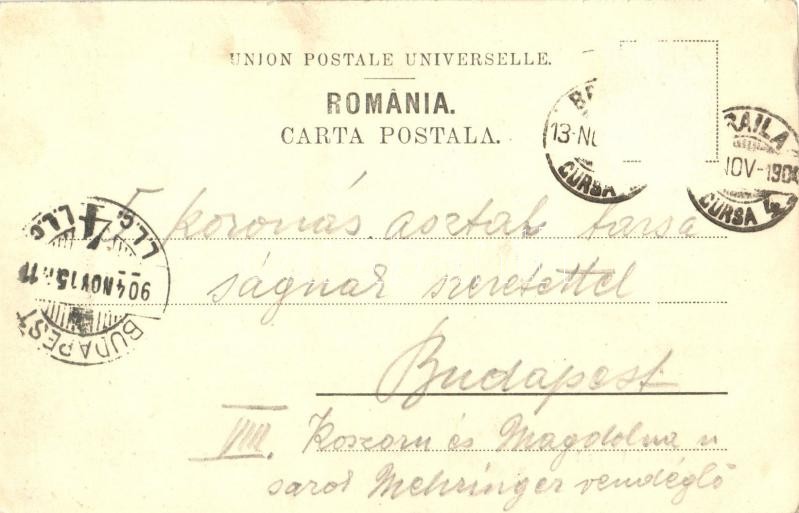 UNION POSTALE UNIVERSELLE.
ROMÂNIA.
CARTA POSTALA.
13-NO
CURSA
RAILA
NOV-1904
CURSA 4
BUDAPEST
904 NOV 15
T. koronás asztal társa
ságnak szeretettel
Budapest
VIII. Koszoru és Magdolna u
sarok Mehringer vendéglő